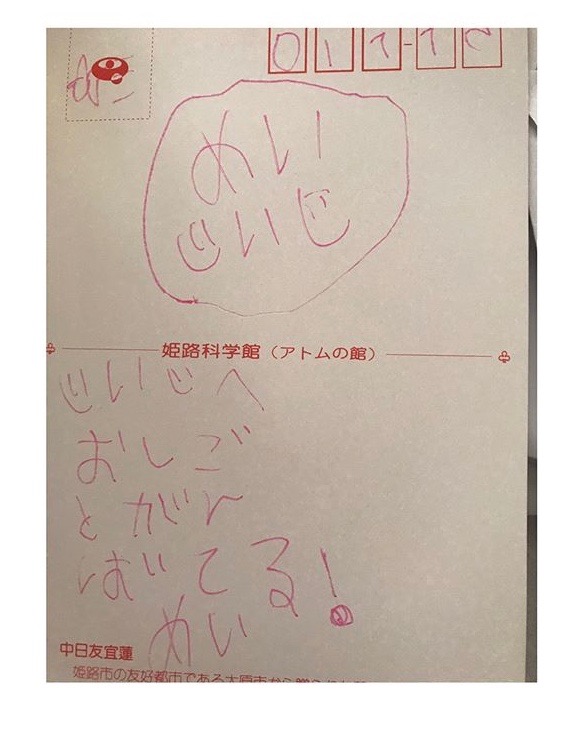 めい
じいじ
姫路科学館（アトムの館）
じいじへ
おしご
とがん
ばいてる!
めい
中日友宜蓮
姫路市の友好都市である太原市から贈られた